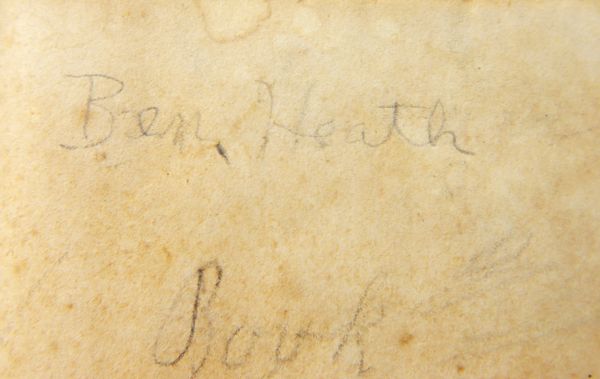 Ben, Heath
Book